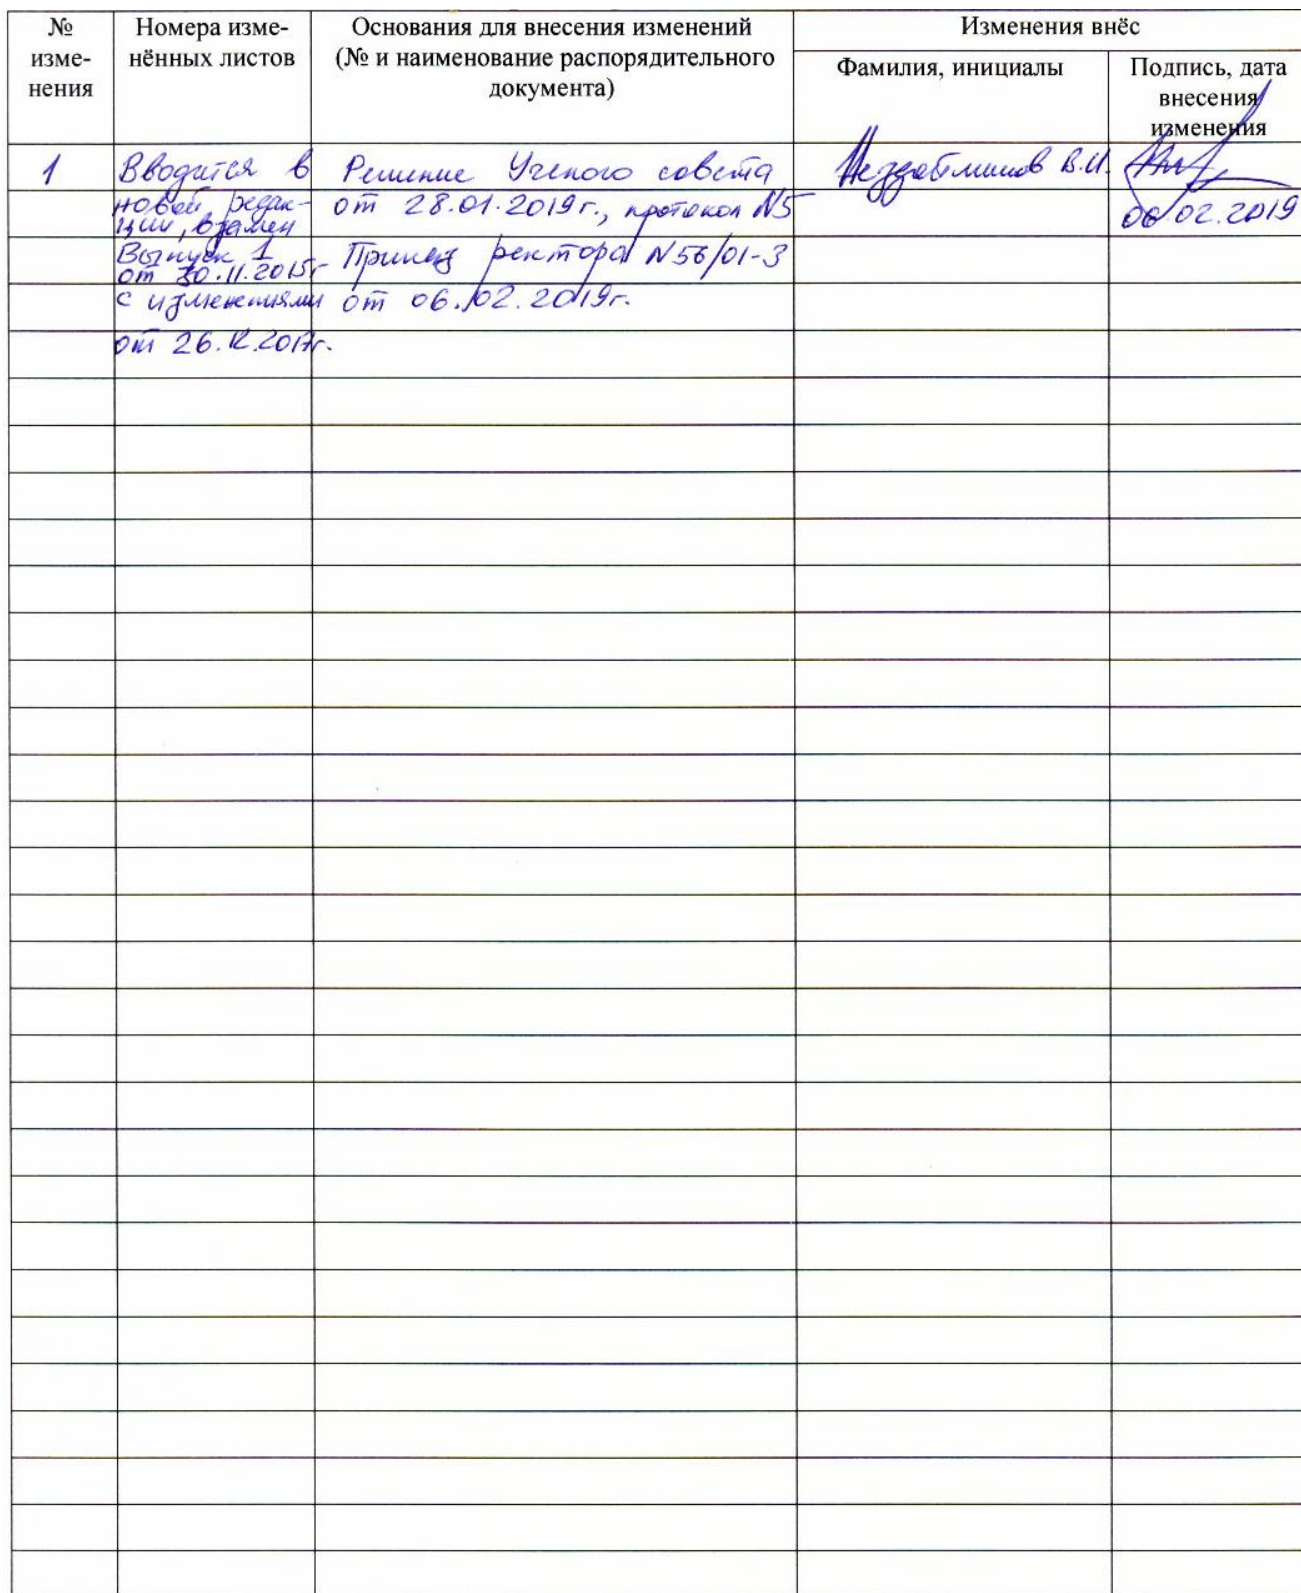 №
изме-
нения
Номера изме-
нённых листов
Основания для внесения изменений
(№ и наименование распорядительного
документа)
Изменения внёс
Фамилия, инициалы
Подпись, дата
внесения
изменения
1
Вводится в
новой редак-
ции, взамен
Выпуск 1
от 30.11.2015г
с изменениями
от 26.12.2017г.
Решение Ученого совета
от 28.01.2019г., протокол №5
Приказ ректора №56/01-3
от 06.02.2019г.
В.И.
06 02.2019